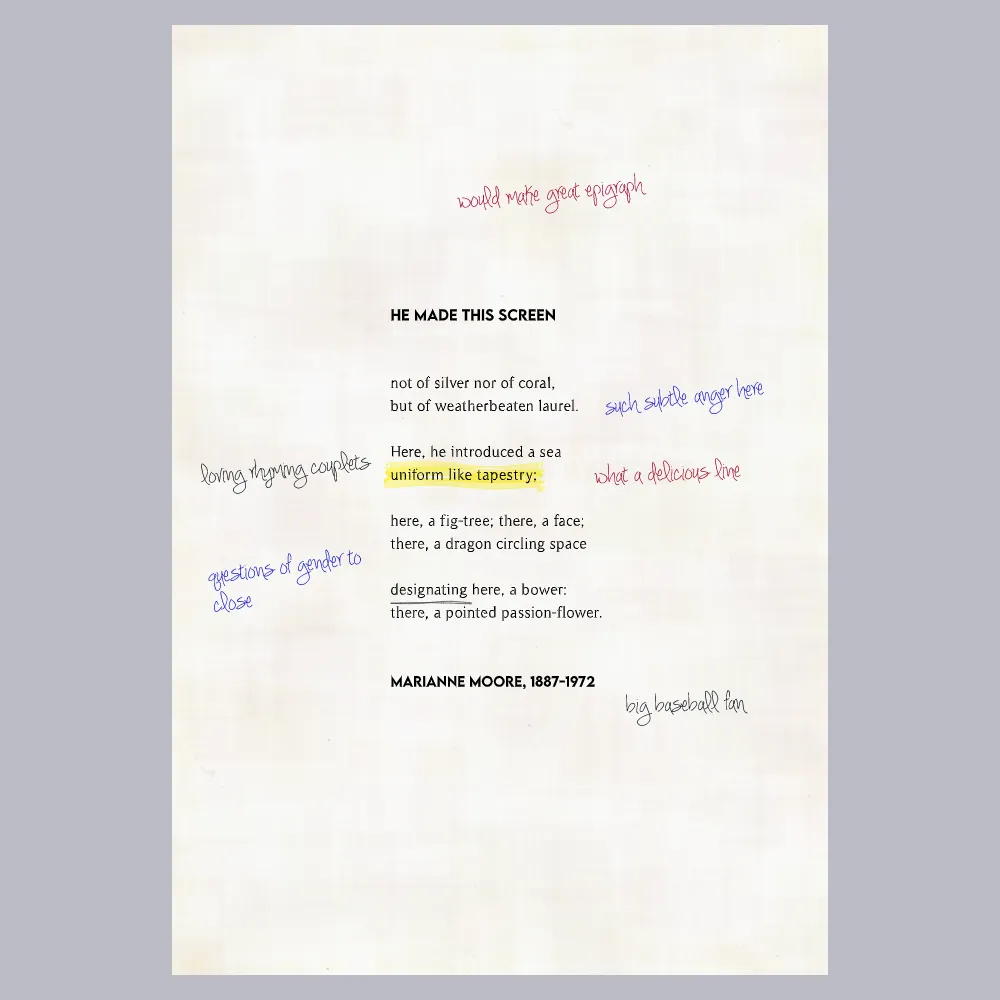 would make great epigraph
HE MADE THIS SCREEN
not of silver nor of coral,
but of weatherbeaten laurel.
such subtle anger here
Here, he introduced a sea
uniform like tapestry;
loving rhyming couplets
what a delicious line
here, a fig-tree; there, a face;
there, a dragon circling space
questions of gender to
close
designating here, a bower:
there, a pointed passion-flower.
MARIANNE MOORE, 1887-1972
big baseball fan